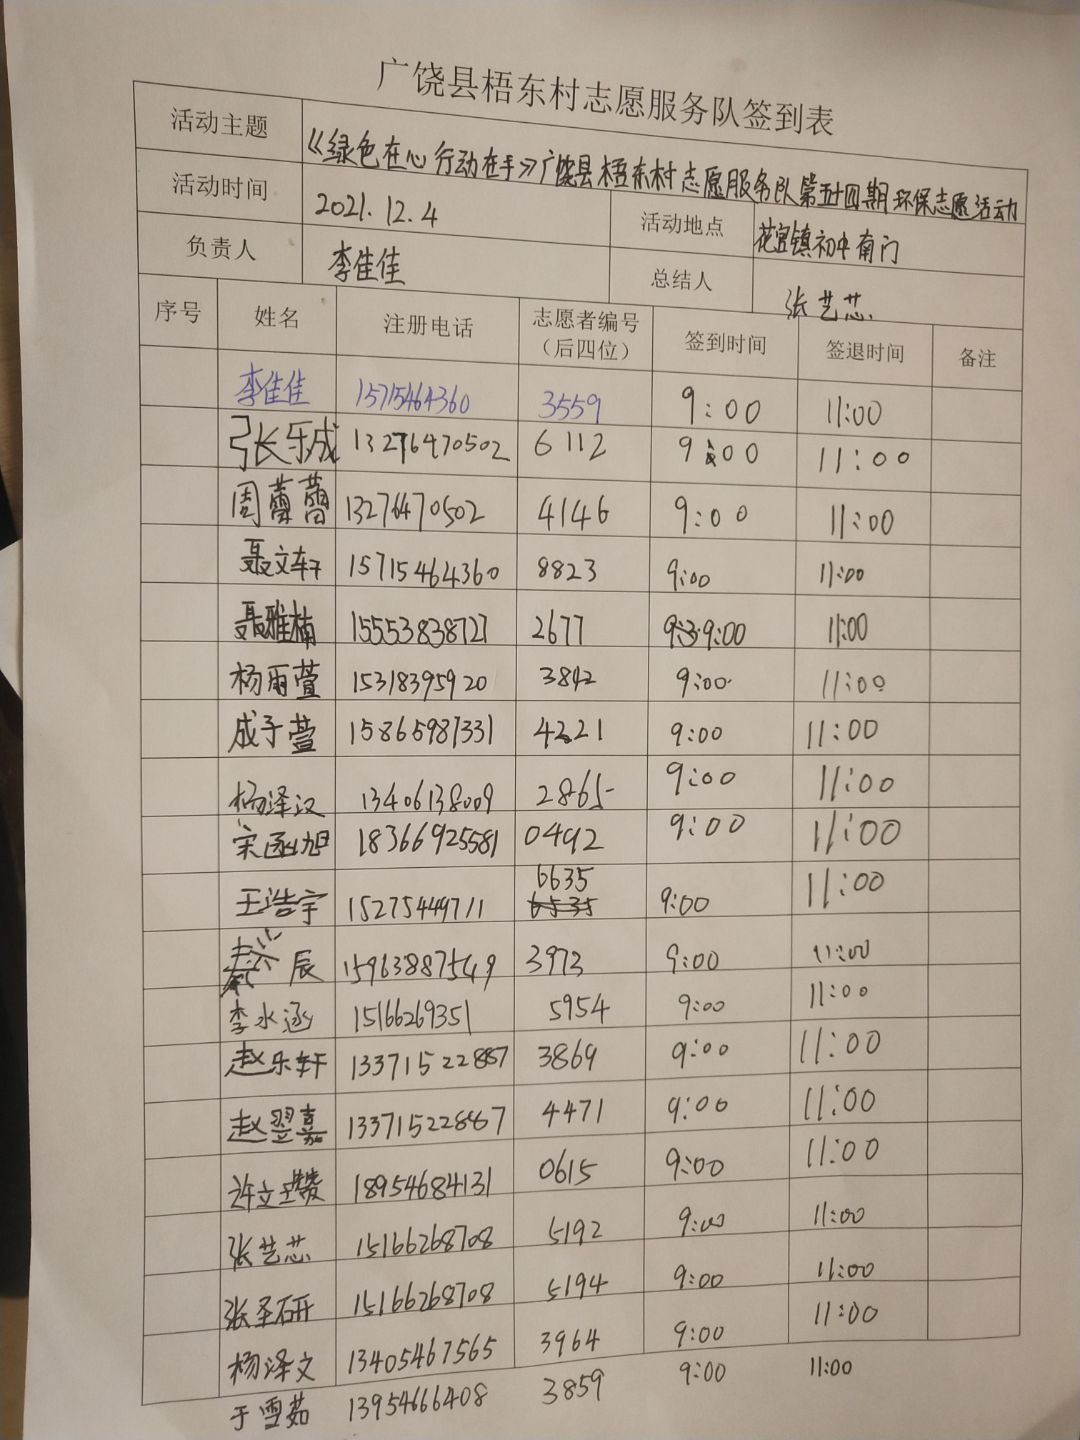 广饶县梧东村志愿服务队签到表
活动主题 《绿色在心 行动在手》广饶县梧东村志愿服务队第五十四期环保志愿活动
活动时间 2021.12.4 活动地点 花官镇初中南门
负责人 李佳佳 总结人 张艺芯
序号 姓名 注册电话 志愿者编号（后四位） 签到时间 签退时间 备注
李佳佳 15715464360 3559 9:00 11:00
张乐成 13276470502 6112 9:00 11:00
周蕾蕾 13276470502 4146 9:00 11:00
聂文轩 15715464360 8823 9:00 11:00
聂雅楠 15553838727 2677 9:00 11:00
杨雨萱 15318395920 3842 9:00 11:00
成子萱 15865987331 4221 9:00 11:00
杨泽汉 13406138009 2865 9:00 11:00
宋函旭 18366925581 0492 9:00 11:00
王浩宇 15275449711 6635 6535 9:00 11:00
辰 15963887549 3973 9:00 11:00
李水涵 15166269351 5954 9:00 11:00
赵乐轩 13371522887 3869 9:00 11:00
赵翌嘉 13371522887 4471 9:00 11:00
许文 18954684131 0615 9:00 11:00
张艺芯 15166268708 5192 9:00 11:00
张圣研 15166268708 5194 9:00 11:00
杨泽文 13405467565 3964 9:00 11:00
于雪茹 13954666408 3859 9:00 11:00